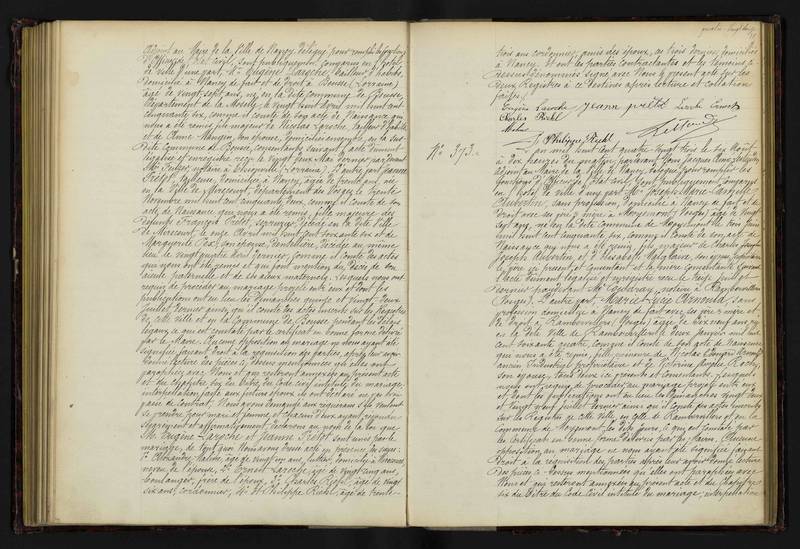 adjoint au Maire de la Ville de Nancy, délégué pour remplir les fonctions
d'Officier d'Etat civil, sont publiquement comparus en l'hôtel
de ville d'une part, Mr Eugène Laroche, tailleur d'habits,
domicilié à Nancy de fait et de droit à Bousse (Lorraine)
âgé de vingt sept ans, né en la dite commune de Bousse,
Département de la Moselle, le vingt huit Avril mil huit cent
cinquante six, comme il conste de son acte de Naissance qui
nous a été remis, fils majeur de Nicolas Laroche, tailleur d'habits
et de Anne Mangin, son épouse, domiciliés ensemble, en la sus
dite commune de Bousse, consentants suivant acte dûment
légalisé et enregistré reçu le vingt deux Mai dernier par devant
notaire à Thionville (Lorraine). D'autre part Jeanne
Prétot, tailleuse, domiciliée à Nancy, âgée de trente ans, née
en la Ville de Mirecourt, département des Vosges, le trente
Novembre mil huit cent cinquante deux, comme il conste de son
acte de Naissance qui nous a été remis, fille majeure des
défunts François Prétot, serrurier, décédé en la dite Ville
de Mirecourt le onze Avril mil huit cent soixante six et de
Marguerite son épouse, dentellière, décédée au même
lieu le vingt quatre Avril dernier, comme il conste des actes
qui nous ont été remis et qui font mention du décès de son
aïeule paternelle et de ses aïeux maternels. Lesquels nous ont
requis de procéder au mariage projeté entre eux et dont les
publications ont eu lieu les Dimanches quinze et vingt deux
Juillet dernier ainsi qu'il conste des actes inscrits sur les Registres
de cette ville et en la Commune de Bousse pendant les délais
légaux, ce qui est constaté par le certificat en bonne forme délivré
par le Maire. Aucune opposition au mariage ne nous ayant été
signifiée, faisant droit à la réquisition des parties, après leur avoir
donné lecture des pièces ci-dessus mentionnées qu'elles ont
paraphées avec Nous et qui resteront annexées au présent acte
et du chapitre six du titre du Code civil intitulé du mariage,
interpellation faite aux futurs époux ils ont déclaré ne pas
de contrat. Nous avons demandé aux requérants s'ils veulent
se prendre pour mari et femme et chacun d'eux ayant répondu
séparément et affirmativement, déclarons au nom de la loi que
Mr Eugène Laroche et Jeanne Prétot sont unis par le
mariage, de tout quoi Nous avons dressé acte en présence des sieurs:
1° Alexandre âgé de vingt six ans, luthier, domicilié à Mirecourt,
neveu de l'épouse, 2° Ernest Laroche, âgé de vingt cinq ans,
boulanger, frère de l'époux, 3° Charles Riehl, âgé de vingt
six ans, cordonnier, 4° et Philippe Riehl, âgé de trente
trois ans cordonnier, amis des époux, ces trois derniers, domiciliés
à Nancy. Et ont les parties contractantes et les témoins
dénommés signé avec Nous le présent acte sur les
deux Registres à ce destinés après lecture et collation
faites.
Eugène Laroche Jeanne prétot Laroche Ernest
Charles Riehl
Philippe Riehl
No 373.
L'an mil huit cent quatre vingt trois le six Août,
à dix heures du matin, pardevant Nous Jacques
adjoint au Maire de la Ville de Nancy, délégué pour remplir les
fonctions d'Officier d'Etat civil, sont publiquement comparus
en l'hôtel de ville d'une part Mr Charles Marie Joseph
Aubertin, sans profession, domicilié à Nancy de fait et de
droit avec ses père et mère à Moyemont (Vosges) âgé de vingt
sept ans, né en la dite commune de Moyemont le trois Juin
mil huit cent cinquante six, suivant il conste de son acte de
Naissance qui nous a été remis, fils majeur de Charles Joseph
Joseph Aubertin et d'Elisabeth son épouse,
le père ici présent et consentant et la mère consentante suivant
acte dûment légalisé et enregistré reçu le treize Juillet
dernier pardevant Me notaire à Rambervillers
(Vosges). D'autre part, Marie Lucie Armand, sans
profession domiciliée à Nancy de fait avec ses père et mère et
de droit à Rambervillers (Vosges), âgée de dix neuf ans, née
en la dite Ville de Rambervillers le deux Janvier mil huit
cent soixante quatre, comme il conste de son acte de Naissance
qui nous a été remis, fille mineure de Nicolas
ancien Industriel, et de Victorine Angèle
son épouse, tous deux ici présents et consentants. Lesquels
nous ont requis de procéder au mariage projeté entre eux
et dont les publications ont eu lieu les Dimanches vingt deux
et vingt neuf Juillet dernier ainsi qu'il conste des actes inscrits
sur les Registres de cette ville, en celle de Rambervillers et en la
Commune de Moyemont les dits jours, ce qui est constaté par
les certificats en bonne forme délivrés par les Maires. Aucune
opposition au mariage ne nous ayant été signifiée faisant
droit à la réquisition des parties après leur avoir donné lecture
des pièces ci-dessus mentionnées qu'elles ont paraphées avec
Nous et qui resteront annexées au présent acte et du Chapitre
six du titre du Code Civil intitulé du mariage, interpellation